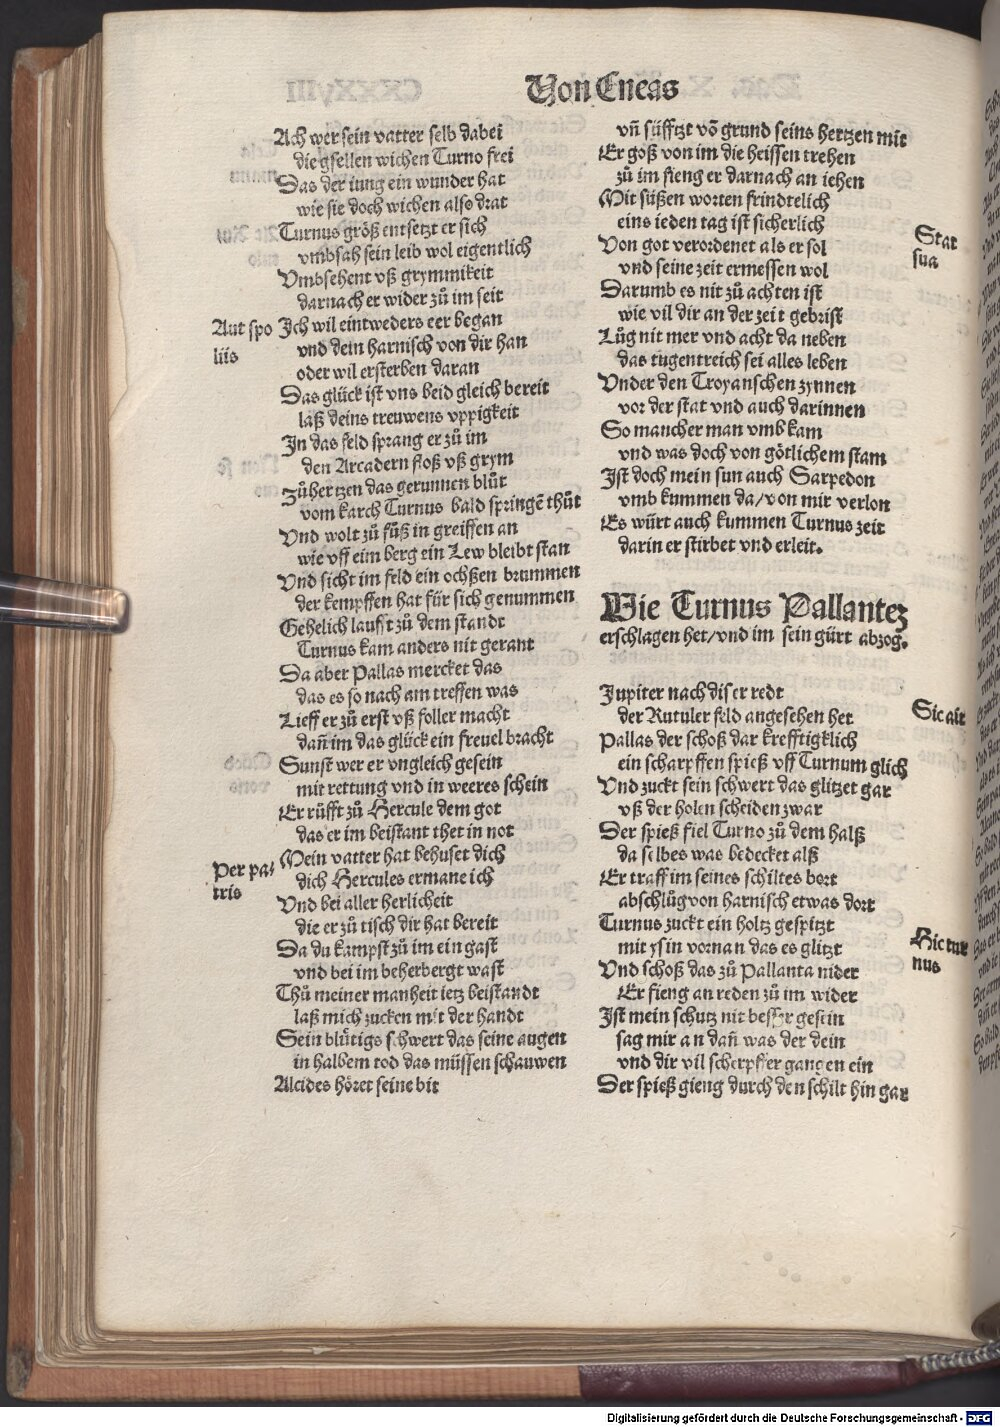 Von Eneas
Ach wer sein vatter selb dabei
die gsellen wichen Turno frei
Das der iung ein wunder hat
wie sie doch wichen also drat
Turnus größ entsetzt er sich
vmbsah sein leib wol eigentlich
Vmbsehent vß grymmikeit
darnach er wider zů im seit
Aut spo
liis
Ich wil eintweders eer began
vnd dein harnisch von dir han
oder wil ersterben daran
Das glück ist vns beid gleich bereit
laß deins treuwens vppigkeit
In das feld sprang er zů im
den Arcadern floß vß grym
Zůhertzen das gerunnen blůt
vom karch Turnus bald springē thůt
Vnd wolt zů fůß in greiffen an
wie vff eim berg ein Lew bleibt stan
Vnd sicht im feld ein ochßen brummen
der kempffen hat für sich genummen
Gehelich laufft zů dem standt
Turnus kam anders nit gerant
Da aber Pallas mercket das
das es so nach am treffen was
Lieff er zů erst vß foller macht
dañ im das glück ein freuel bracht
Sunst wer er vngleich gesein
mit rettung vnd in weeres schein
Er růfft zů Hercule dem got
das er im beistant thet in not
Per pa⸗
tris
Mein vatter hat behuset dich
dich Hercules ermane ich
Vnd bei aller herlicheit
die er zů tisch dir hat bereit
Da du kampst zů im ein gast
vnd bei im beherbergt wast
Thů meiner manheit ietz beistandt
laß mich zucken mit der handt
Sein blůtigs schwert das seine augen
in halbem tod das müssen schauwen
Alcides höret seine bit
vñ süfftzt võ grund seins hertzen mit
Er goß von im die heissen trehen
zů im fieng er darnach an iehen
Mit süßen worten frindtelich
eins ieden tag ist sicherlich
Stat
sua
Von got verordenet als er sol
vnd seine zeit ermessen wol
Darumb es nit zů achten ist
wie vil dir an der zeit gebrist
Lůg nit mer vnd acht da neben
das tugentreich sei alles leben
Vnder den Troyanschen zynnen
vor der stat vnd auch darinnen
So mancher man vmb kam
vnd was doch von götlichem stam
Ist doch mein sun auch Sarpedon
vmb kummen da/von mir verlon
Es würt auch kummen Turnus zeit
darin er stirbet vnd erleit.
Wie Turnus Pallantez
erschlagen het/vnd im sein gürt abzog.
Jupiter nach diser redt
Sic ait
der Rutuler feld angesehen het
Pallas der schoß dar krefftigklich
ein scharpffen spieß vff Turnum glich
Vnd zuckt sein schwert das glitzet gar
vß der holen scheiden zwar
Der spieß fiel Turno zů dem halß
da selbes was bedecket alß
Er traff im seines schiltes bort
abschlůg von harnisch etwas dort
Turnus zuckt ein holtz gespitzt
Hic tur
nus
mit ysin vornan das es glitzt
Vnd schoß das zů Pallanta nider
Er fieng an reden zů im wider
Ist mein schutz nit besser gesein
sag mir an dañ was der dein
vnd dir vil scherpffer gangen ein
Der spieß gieng durch den schilt hin gar
Digitalisierung gefördert durch die Deutsche Forschungsgemeinschaft - DFG